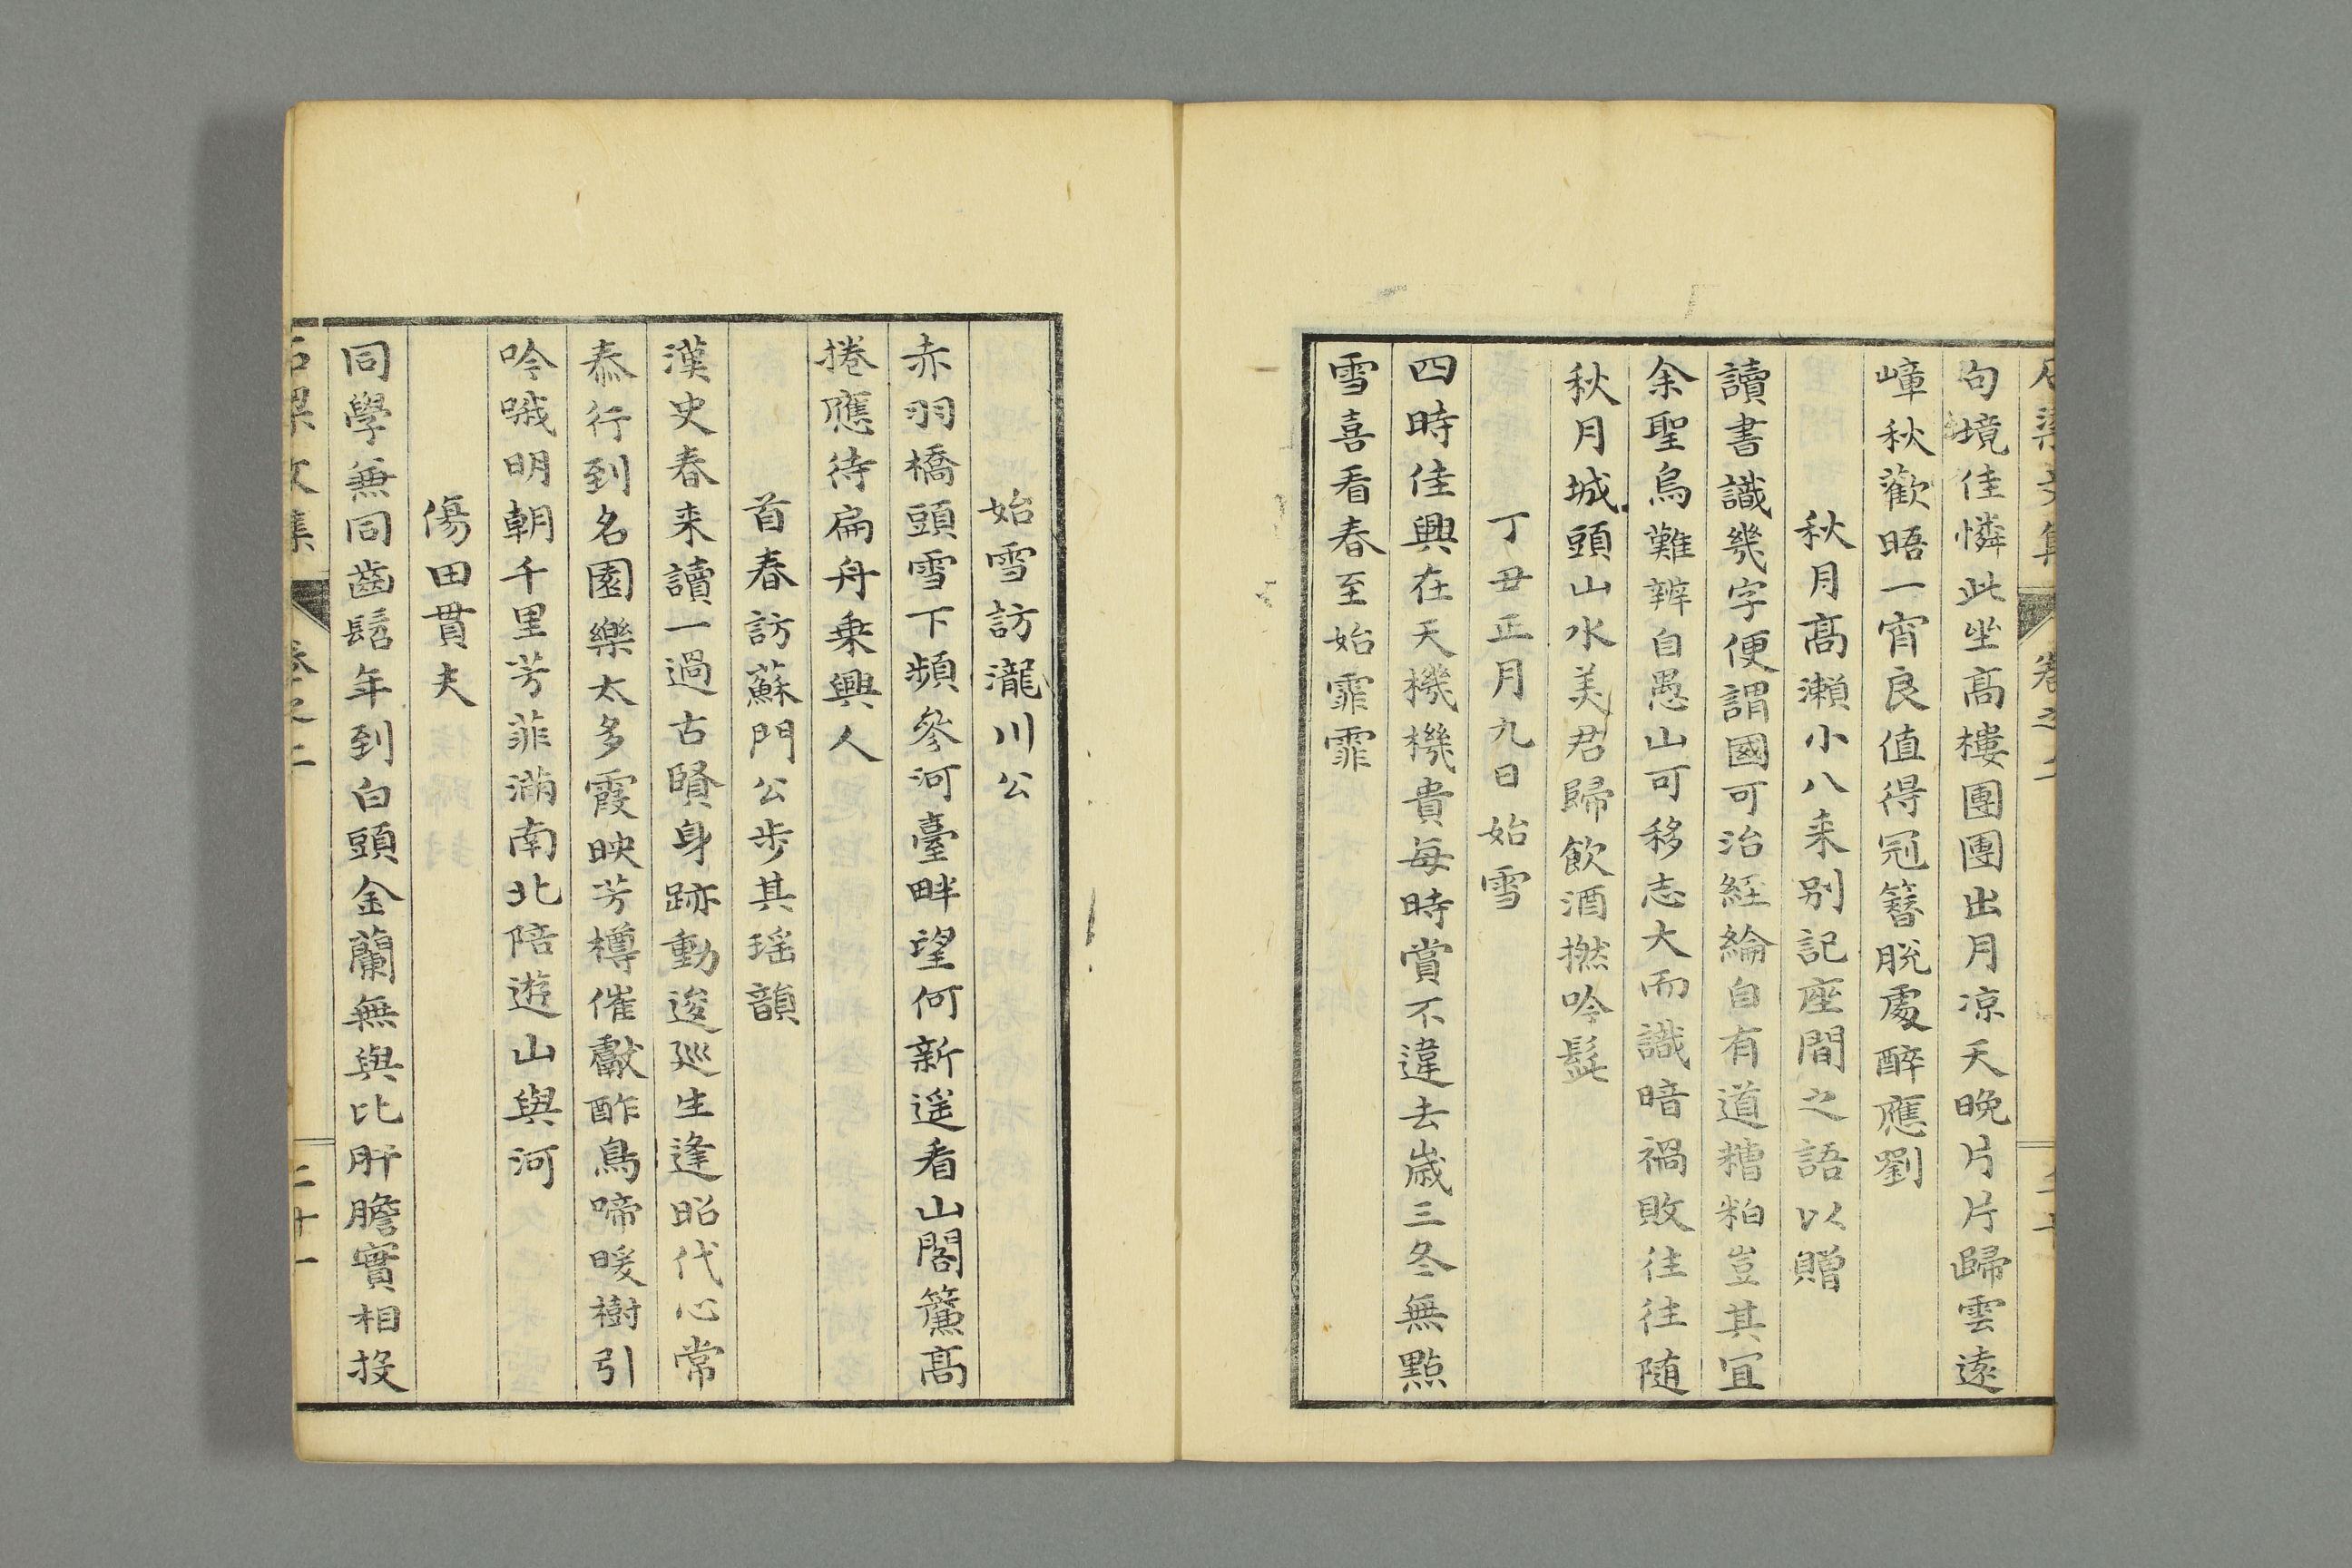 句境佳憐此坐高樓團團出月凉天晚片片歸雲遠
嶂秋歡晤一宵良值得冠簪脱處醉應劉
秋月高瀬小八来别記座間之語以贈
讀書識幾字便謂國可治経綸自有道糟粕豈其宜
余聖烏難辨自愚山可移志大而識暗禍敗往往随
秋月城頭山水美君歸飲酒撚吟髭
丁丑正月九日始雪
四時佳興在天機機貴每時賞不違去歳三冬無點
雪喜看春至始霏霏
始雪訪瀧川公
赤羽橋頭雪下頻參河臺畔望何新遥看山閣簾高
捲應待扁舟乗興人
首春訪蘇門公歩其瑶韻
漢史春来讀一過古賢身跡動逡巡生逢昭代心常
泰行到名園樂太多霞映芳樽催獻酢鳥啼暖樹引
吟哦明朝千里芳菲満南北陪遊山與河
傷田貫夫
同學無同齒髫年到白頭金蘭無與比肝膽實相投
石梁文集
卷之二
二十一